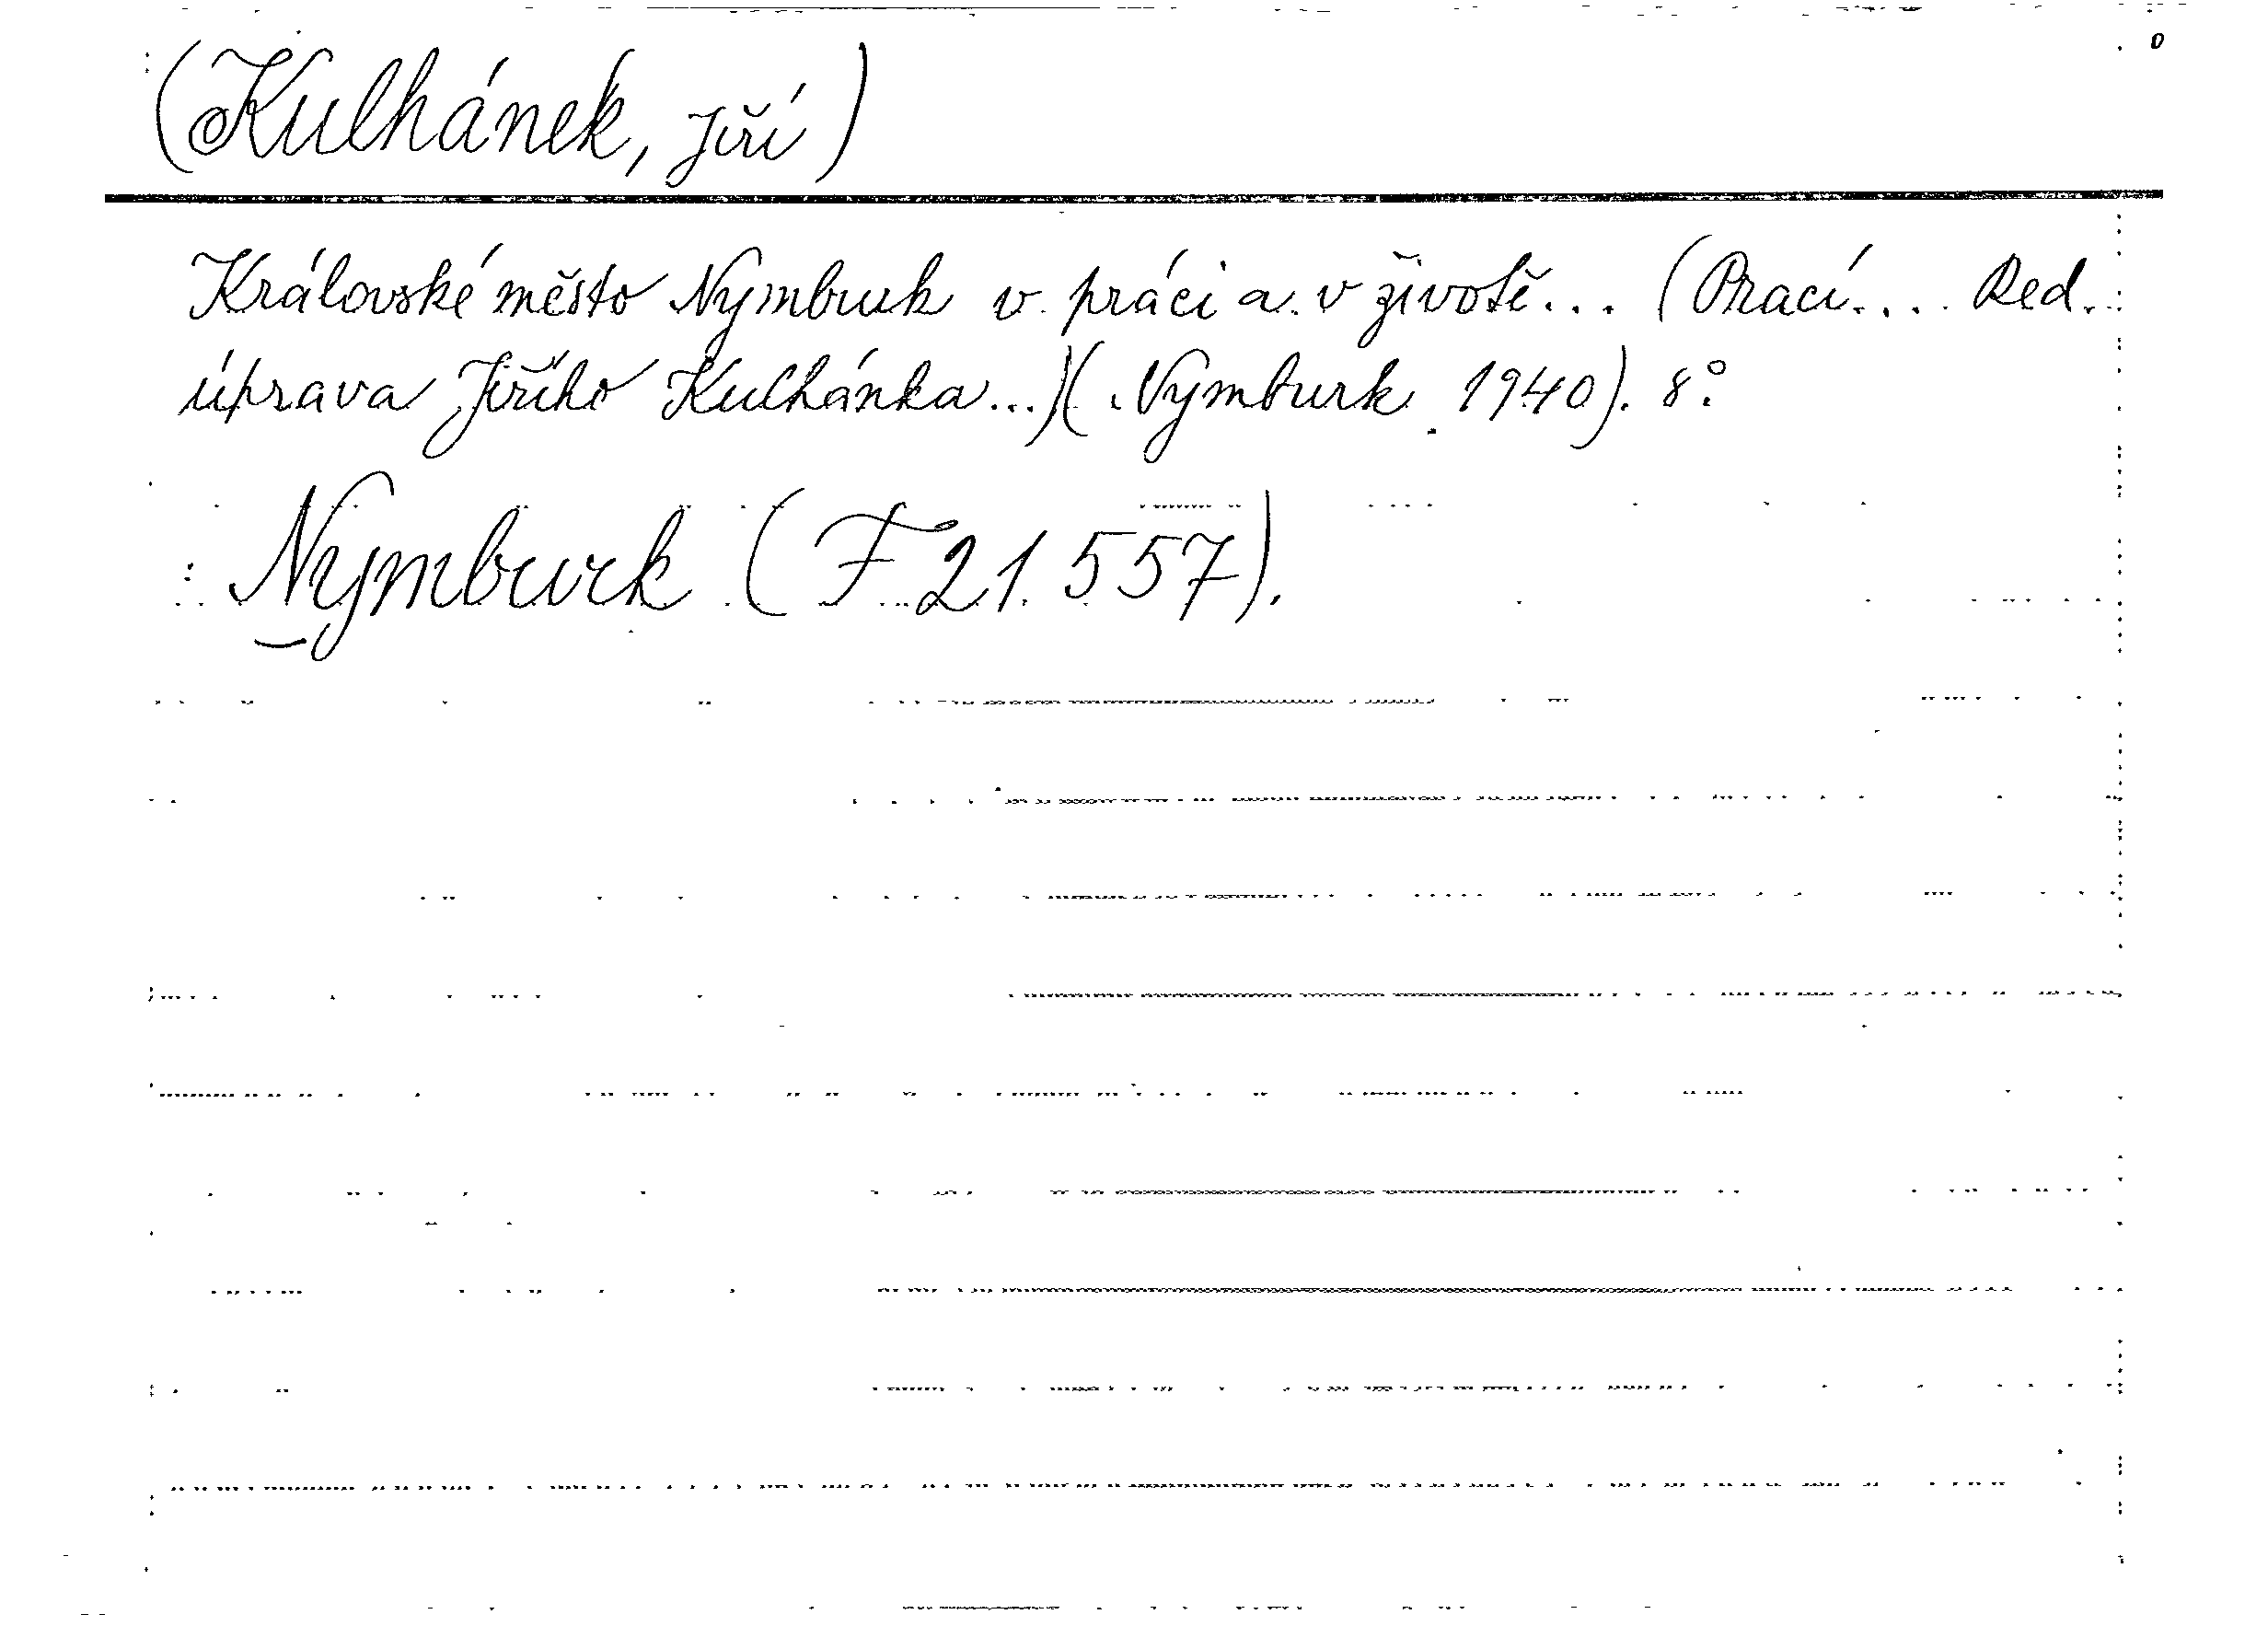 (Kulhánek, Jiří)
Královské město Nymbuk v práci a v životě... (Prací.... Red.
úprava Jiřího Kulhánka...)(Nymburk 1940). 8°.
Nymburk (F 21.557).